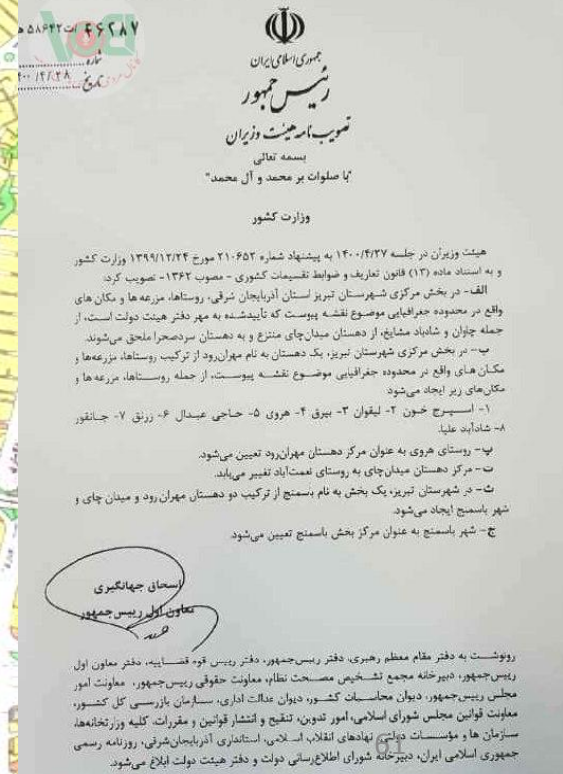 ۴۶۲۸۷/ت۵۸۶۴۲ه
شماره
تاریخ ۴/۲۸/
جمهوری اسلامی ایران
رئیس جمهور
تصویب نامه هیئت وزیران
بسمه تعالی
"با صلوات بر محمد و آل محمد"
وزارت کشور
هیئت وزیران در جلسه ۱۴۰۰/۴/۲۷ به پیشنهاد شماره ۲۱۰۶۵۲ مورخ ۱۳۹۹/۱۲/۲۴ وزارت کشور
و به استناد ماده (۱۳) قانون تعاریف و ضوابط تقسیمات کشوری - مصوب ۱۳۶۲- تصویب کرد:
الف- در بخش مرکزی شهرستان تبریز استان آذربایجان شرقی، روستاها، مزرعه ها و مکان های
واقع در محدوده جغرافیایی موضوع نقشه پیوست که تأییدشده به مهر دفتر هیئت دولت است، از
جمله چاوان و شادباد مشایخ، از دهستان میدان‌چای منتزع و به دهستان سردصحرا ملحق می‌شوند.
ب- در بخش مرکزی شهرستان تبریز، یک دهستان به نام مهران‌رود از ترکیب روستاها، مزرعه‌ها و
مکان های واقع در محدوده جغرافیایی موضوع نقشه پیوست، از جمله روستاها، مزرعه‌ها و
مکان‌های زیر ایجاد می‌شود:
۱- اسپرج خون ۲- لیقوان ۳- بیرق ۴- هروی ۵- حاجی عبدال ۶- زرنق ۷- جانقور
۸- شادآبد علیا.
پ- روستای هروی به عنوان مرکز دهستان مهران‌رود تعیین می‌شود.
ت- مرکز دهستان میدان‌چای به روستای نعمت‌آباد تغییر می‌یابد.
ث- در شهرستان تبریز، یک بخش به نام باسمنج از ترکیب دو دهستان مهران رود و میدان چای و
شهر باسمنج ایجاد می‌شود.
ج- شهر باسمنج به عنوان مرکز بخش باسمنج تعیین می‌شود.
اسحاق جهانگیری
معاون اول رییس‌جمهور
رونوشت به دفتر مقام معظم رهبری، دفتر رییس‌جمهور، دفتر رییس قوه قضاییه، دفتر معاون اول
رییس‌جمهور، دبیرخانه مجمع تشخیص مصلحت نظام، معاونت حقوقی رییس‌جمهور، معاونت امور
مجلس رییس‌جمهور، دیوان محاسبات کشور، دیوان عدالت اداری، سازمان بازرسی کل کشور،
معاونت قوانین مجلس شورای اسلامی، امور تدوین، تنقیح و انتشار قوانین و مقررات، کلیه وزارتخانه‌ها،
سازمان ها و مؤسسات دولتی، نهادهای انقلاب اسلامی، استانداری آذربایجان‌شرقی، روزنامه رسمی
جمهوری اسلامی ایران، دبیرخانه شورای اطلاع‌رسانی دولت و دفتر هیئت دولت ابلاغ می‌شود.
61